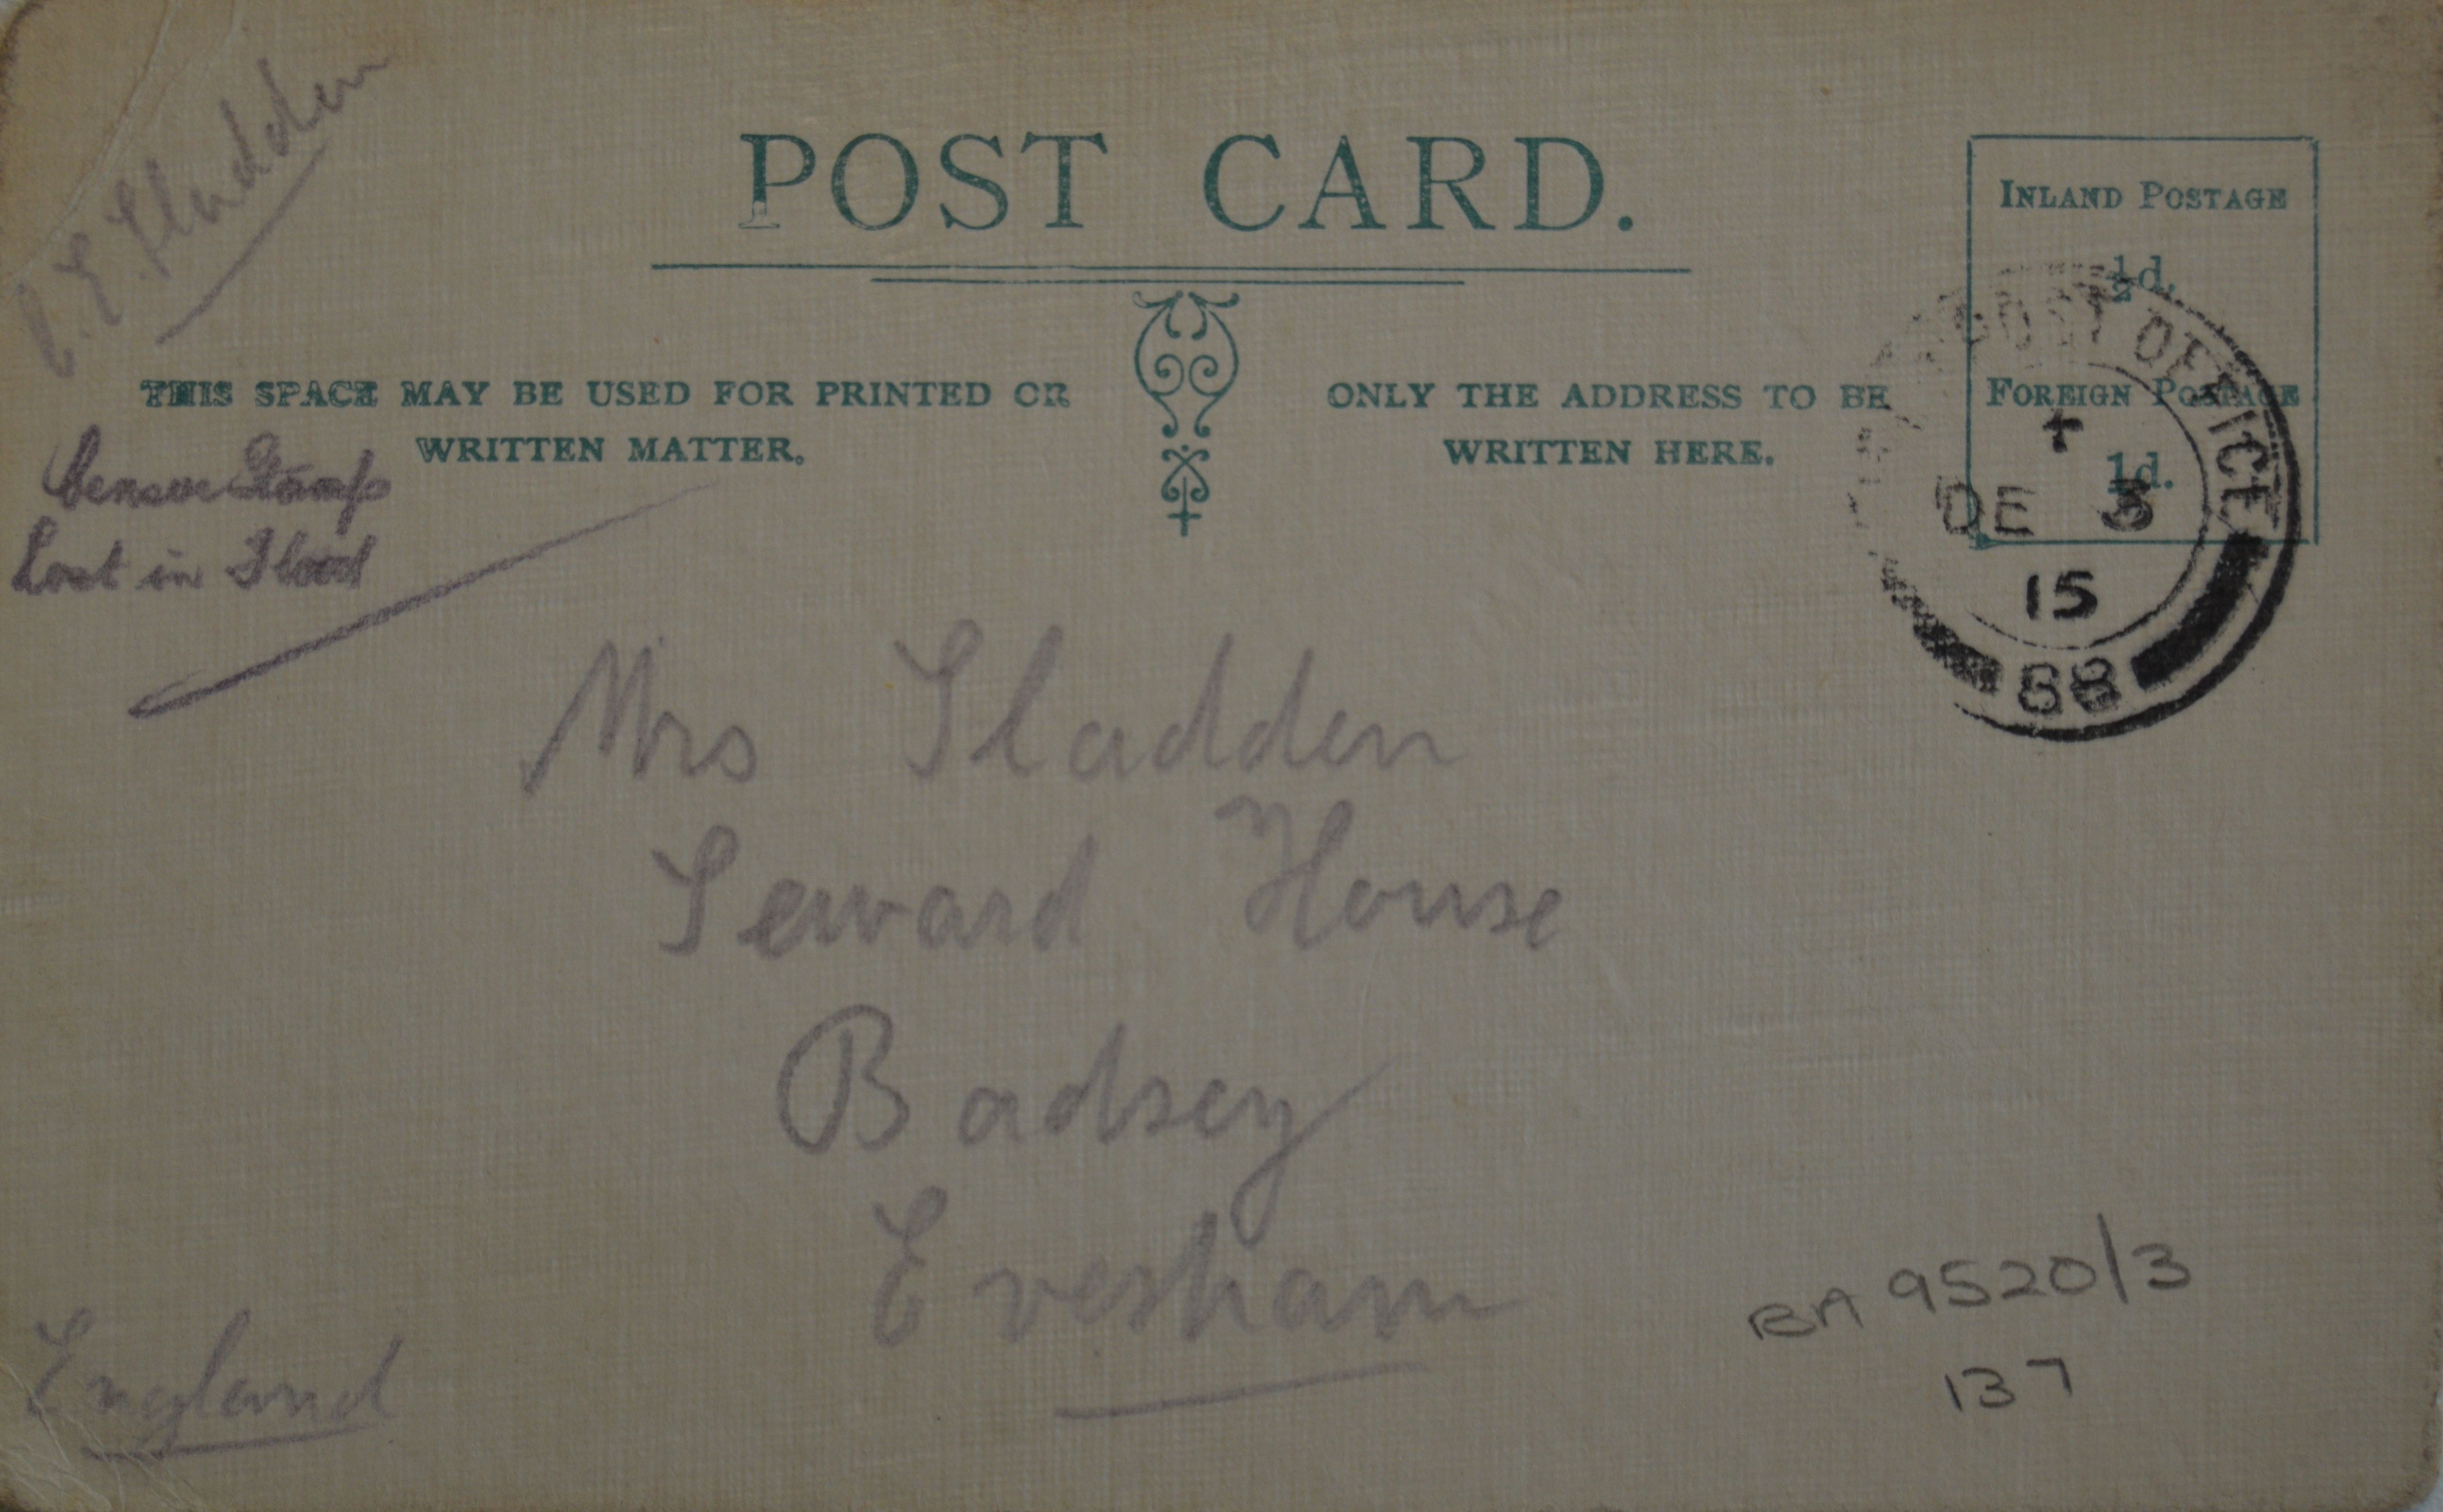 C. E. Sladden
POST CARD.
INLAND POSTAGE
½d.
FOREIGN POSTAGE
1d.
THIS SPACE MAY BE USED FOR PRINTED OR
WRITTEN MATTER.
ONLY THE ADDRESS TO BE
WRITTEN HERE.
Censor Stamp
Lost in Flood
POST OFFICE
DE 3
15
Mrs Sladden
Seward House
Badsey
Evesham
England
BA 9520/3
137